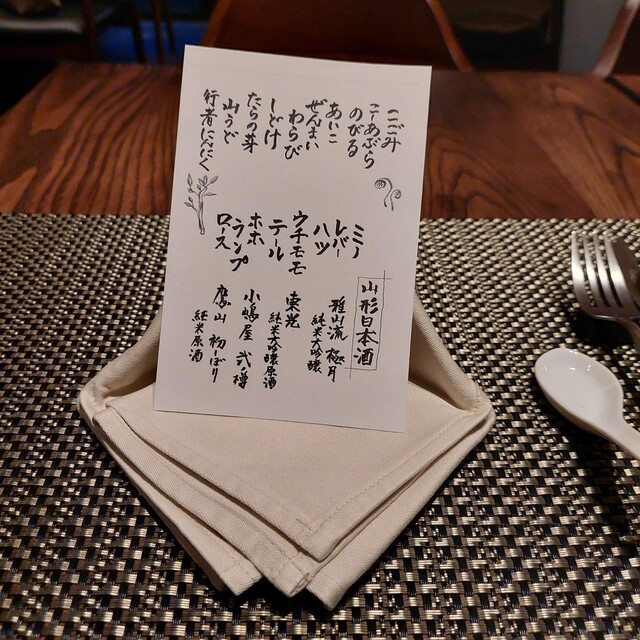 こごみ
こしあぶら
のびる
あいこ
ぜんまい
わらび
しどけ
たらの芽
山うど
行者にんにく
ミノ
レバー
ハツ
ウチモモ
テール
ホホ
ランプ
ロース
山形日本酒
雅山流 極月
純米大吟醸
東光
純米大吟醸原酒
小嶋屋 弐ノ樽
鷹山 初しぼり
純米原酒